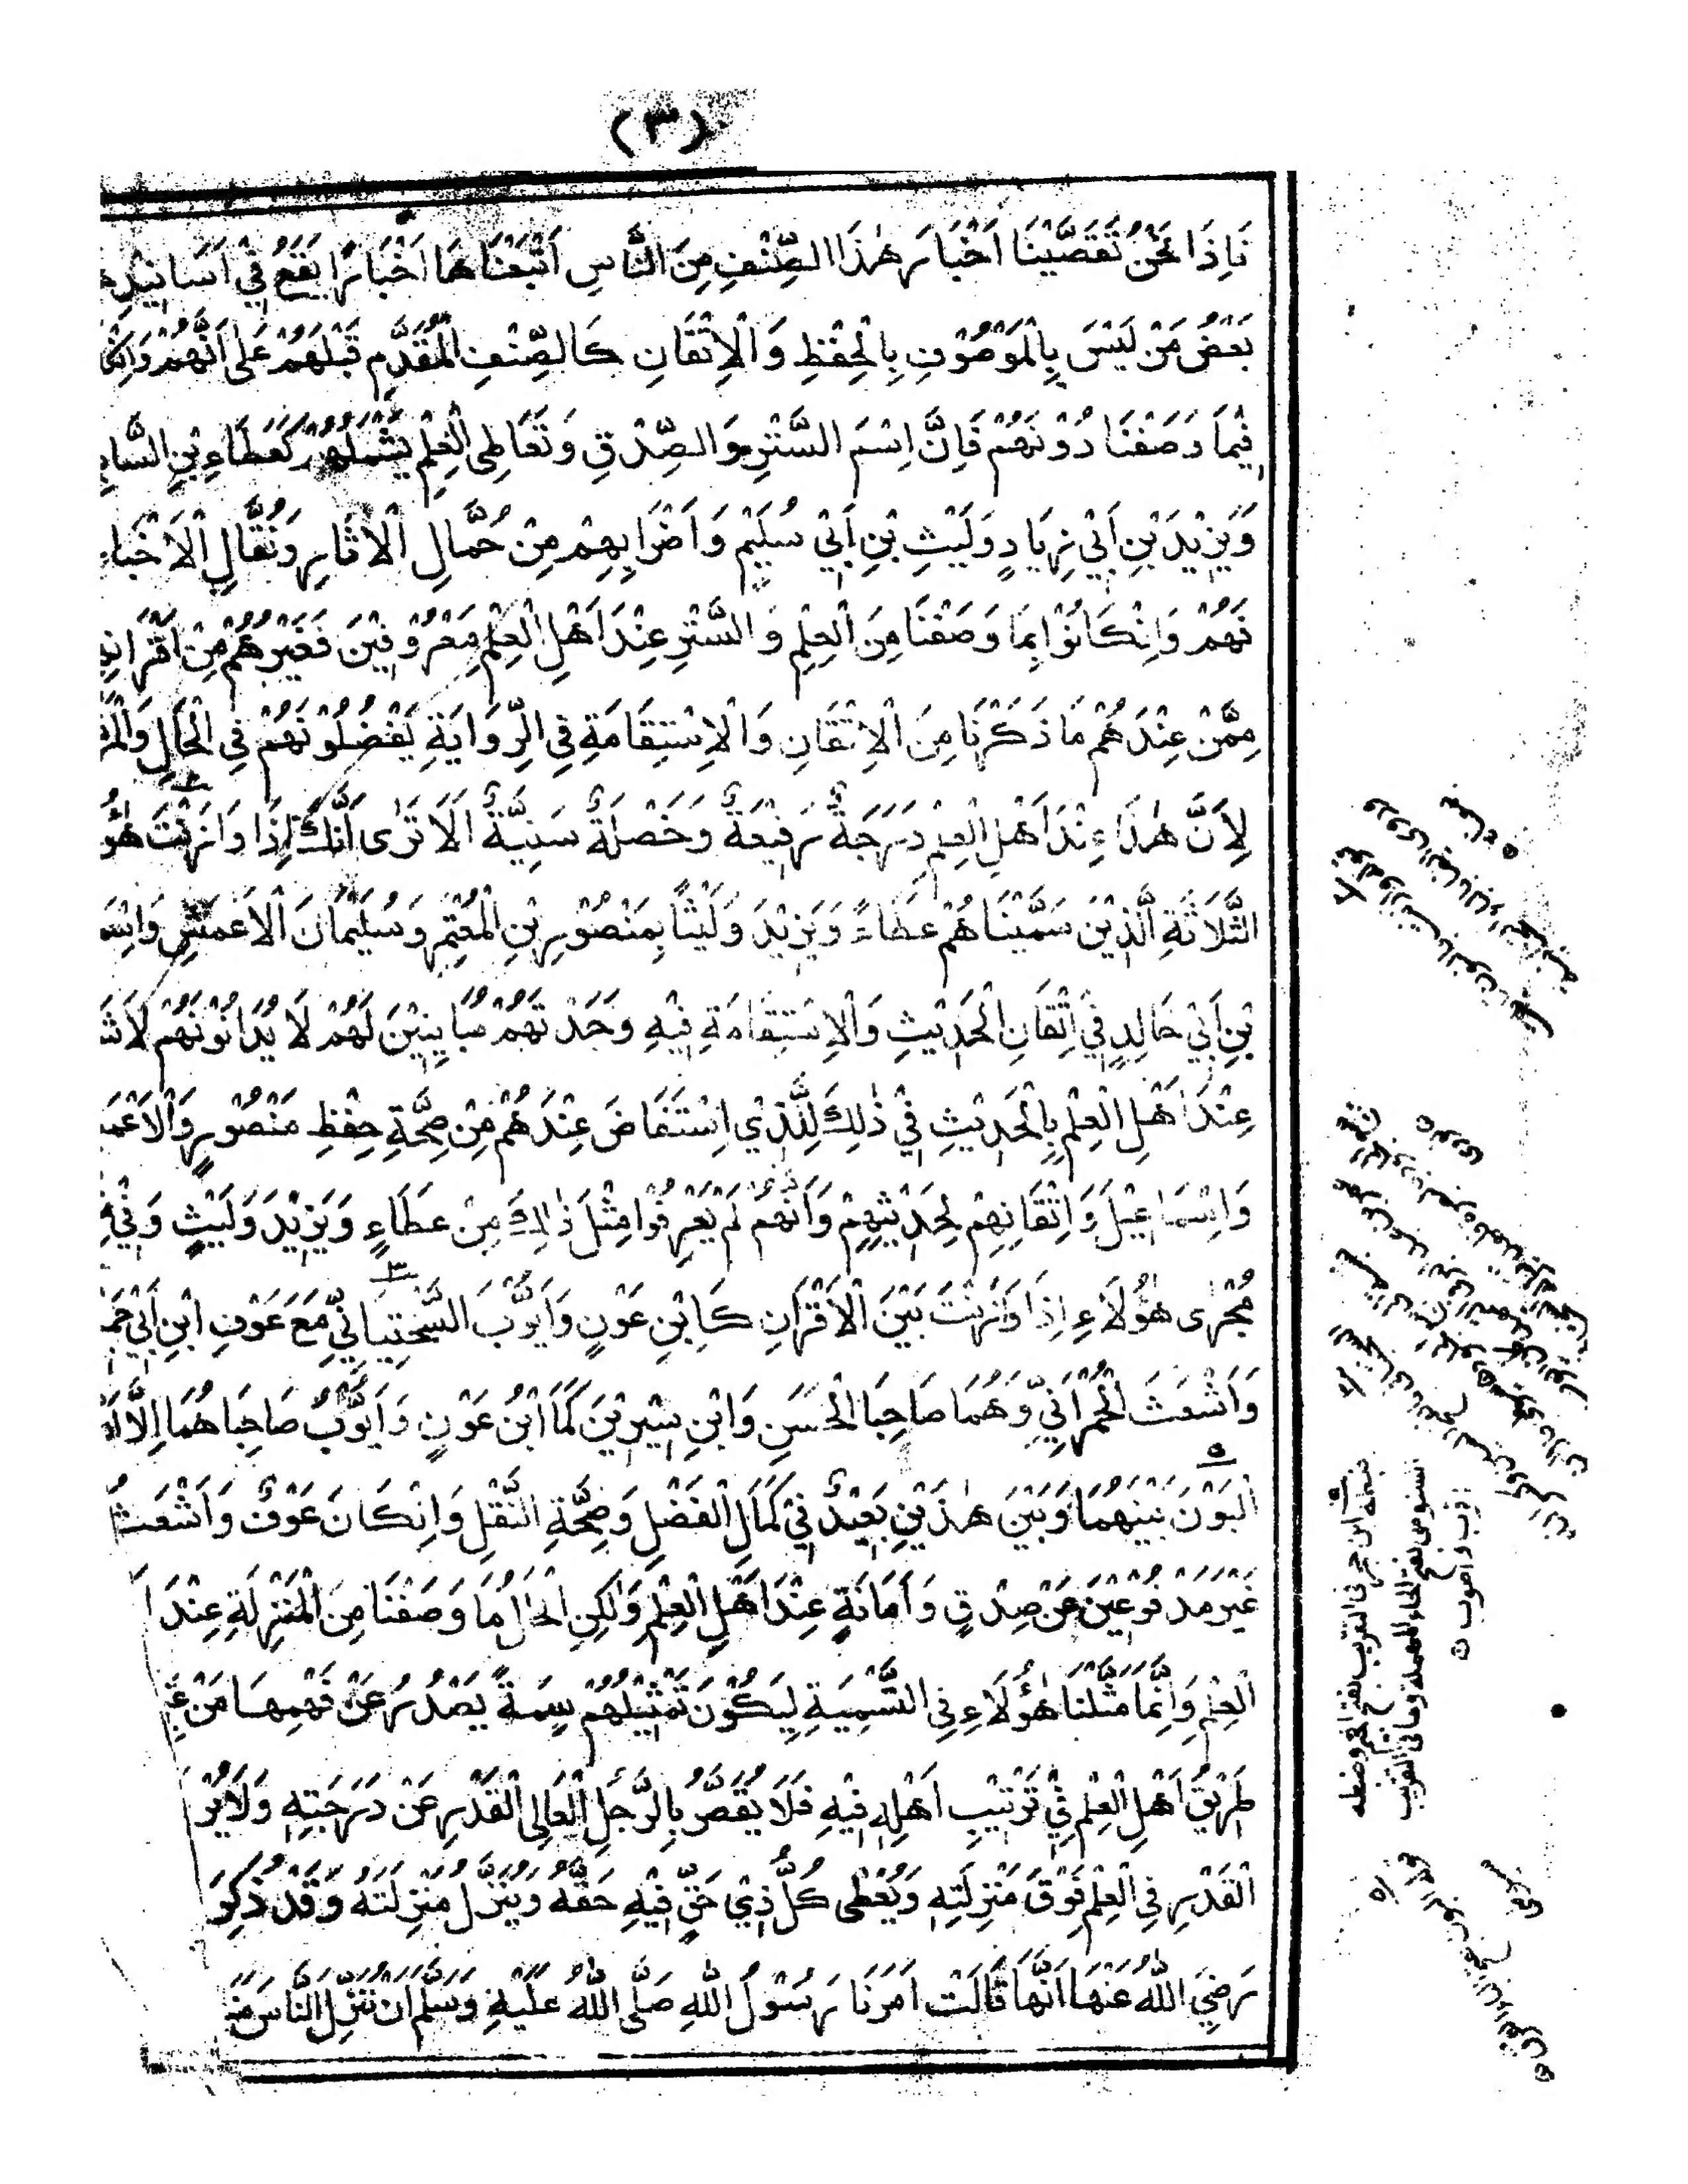 (٣)
فَاِذَا نَحْنُ تَقَصَّيْنَا اَخْبَارَ هٰذَا الصِّنْفِ مِنَ النَّاسِ اَتْبَعْنَاهَا اَخْبَارًا يَقَعُ فِيْ اَسَانِيْدِهَ
بَعْضُ مَنْ لَيْسَ بِالْمَوْصُوْفِ بِالْحِفْظِ وَالْاِتْقَانِ كَالصِّنْفِ الْمُقَدَّمِ قَبْلَهُمْ عَلٰى اَنَّهُمْ وَاِنْ كَا
فِيْمَا وَصَفْنَا دُوْنَهُمْ فَاِنَّ اِسْمَ السَّتْرِ وَالصِّدْقِ وَتَعَاطِى الْعِلْمِ يَشْمَلُهُمْ كَعَطَاءِ بْنِ السَّايِ
وَيَزِيْدَ بْنِ اَبِيْ زِيَادٍ وَلَيْثِ بْنِ اَبِيْ سُلَيْمٍ وَاَضْرَابِهِمْ مِنْ حُمَّالِ الْاٰثَارِ وَنُقَّالِ الْاَخْبَا
فَهُمْ وَاِنْ كَانُوْا بِمَا وَصَفْنَا مِنَ الْعِلْمِ وَالسَّتْرِ عِنْدَ اَهْلِ الْعِلْمِ مَعْرُوْفِيْنَ فَغَيْرُهُمْ مِنْ اَقْرَانِهِ
مِمَّنْ عِنْدَهُمْ مَا ذَكَرْنَا مِنَ الْاِتْقَانِ وَالْاِسْتِقَامَةِ فِي الرِّوَايَةِ يَفْضُلُوْنَهُمْ فِي الْحَالِ وَالْمَ
لِاَنَّ هٰذَا عِنْدَ اَهْلِ الْعِلْمِ دَرَجَةٌ رَفِيْعَةٌ وَخَصْلَةٌ سَنِيَّةٌ اَلَا تَرٰى اَنَّكَ اِذَا وَازَنْتَ هٰؤُ
الثَّلَاثَةِ الَّذِيْنَ سَمَّيْنَاهُمْ عَطَاءً وَيَزِيْدَ وَلَيْثًا بِمَنْصُوْرِ بْنِ الْمُعْتَمِرِ وَسُلَيْمَانَ الْاَعْمَشِ وَاِسْمَ
بْنِ اَبِيْ خَالِدٍ فِيْ اِتْقَانِ الْحَدِيْثِ وَالْاِسْتِقَامَةِ فِيْهِ وَجَدْتَهُمْ مُبَايِنِيْنَ لَهُمْ لَا يُدَانُوْنَهُمْ لَا شَ
عِنْدَ اَهْلِ الْعِلْمِ بِالْحَدِيْثِ فِيْ ذٰلِكَ لِلَّذِي اسْتَفَاضَ عِنْدَهُمْ مِنْ صِحَّةِ حِفْظِ مَنْصُوْرٍ وَالْاَعْمَ
وَاِسْمَاعِيْلَ وَاِتْقَانِهِمْ لِحَدِيْثِهِمْ وَاَنَّهُمْ لَمْ يَعْرِفُوْا مِثْلَ ذٰلِكَ مِنْ عَطَاءٍ وَيَزِيْدَ وَلَيْثٍ وَفِيْ
مَجْرٰى هٰؤُلَاءِ اِذَا وَازَنْتَ بَيْنَ الْاَقْرَانِ كَابْنِ عَوْنٍ وَاَيُّوْبَ السَّخْتِيَانِيِّ مَعَ عَوْفِ ابْنِ اَبِيْ جَمِ
وَاَشْعَثَ الْحُمْرَانِيِّ وَهُمَا صَاحِبَا الْحَسَنِ وَابْنِ سِيْرِيْنَ كَمَا ابْنُ عَوْنٍ وَاَيُّوْبُ صَاحِبَاهُمَا اِلَّا اَنَّ
الْبَوْنَ بَيْنَهُمَا وَبَيْنَ هٰذَيْنِ بَعِيْدٌ فِيْ كَمَالِ الْفَضْلِ وَصِحَّةِ النَّقْلِ وَاِنْ كَانَ عَوْفٌ وَاَشْعَثُ
غَيْرَ مَدْفُوْعَيْنِ عَنْ صِدْقٍ وَاَمَانَةٍ عِنْدَ اَهْلِ الْعِلْمِ وَلٰكِنِ الْحَالُ مَا وَصَفْنَا مِنَ الْمَنْزِلَةِ عِنْدَ اَ
الْعِلْمِ وَاِنَّمَا مَثَّلْنَا هٰؤُلَاءِ فِي التَّسْمِيَةِ لِيَكُوْنَ تَمْثِيْلُهُمْ سِمَةً يَصْدُرُ عَنْ فَهْمِهَا مَنْ غَ
طَرِيْقُ اَهْلِ الْعِلْمِ فِيْ تَرْتِيْبِ اَهْلِهٖ فِيْهِ فَلَا يُقَصَّرُ بِالرَّجُلِ الْعَالِى الْقَدْرِ عَنْ دَرَجَتِهٖ وَلَا يُرْ
الْقَدْرِ فِي الْعِلْمِ فَوْقَ مَنْزِلَتِهٖ وَيُعْطٰى كُلُّ ذِيْ حَقٍّ فِيْهِ حَقَّهُ وَيُنَزَّلُ مَنْزِلَتَهُ وَقَدْ ذُكِرَ
رَضِيَ اللّٰهُ عَنْهَا اَنَّهَا قَالَتْ اَمَرَنَا رَسُوْلُ اللّٰهِ صَلَّى اللّٰهُ عَلَيْهِ وَسَلَّمَ اَنْ نُنَزِّلَ النَّاسَ مَنَ